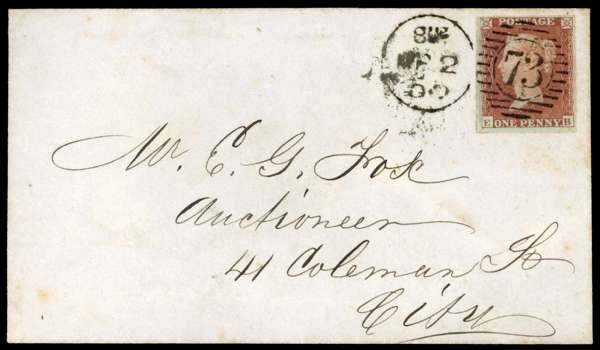 POSTAGE
73
E ONE PENNY H
Mr. C. G. Fox
Auctioneer
41 Coleman St
City